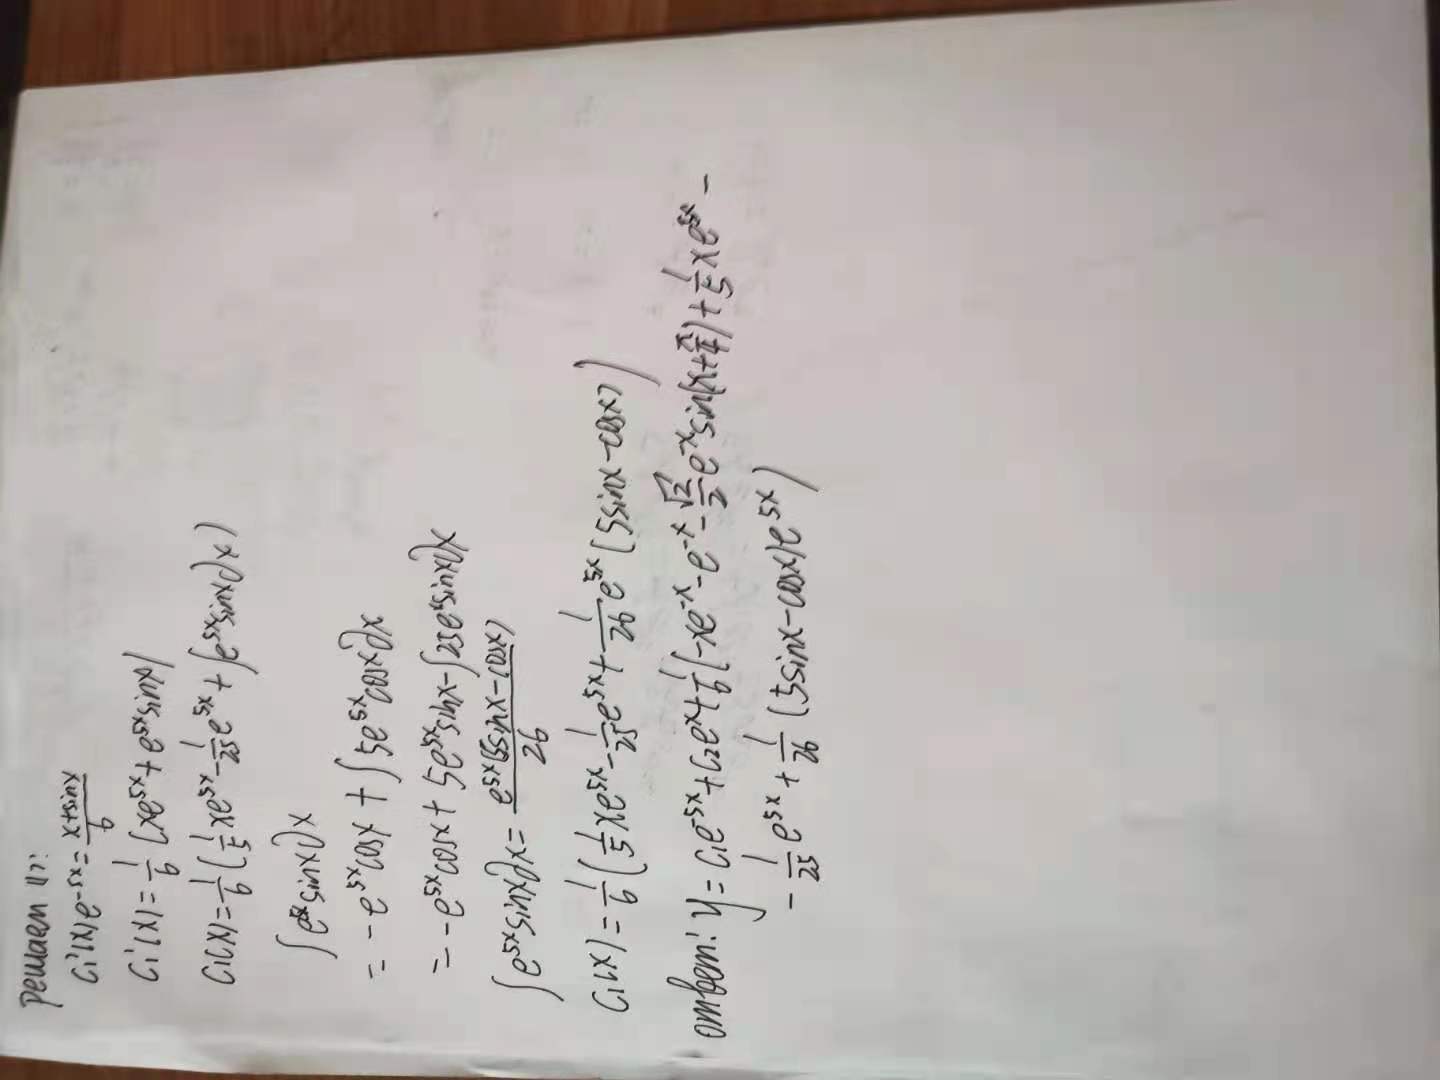 решаем (1):
C₁'(x)e^{-5x} = \frac{x+sinx}{6}
C₁'(x) = \frac{1}{6}(xe^{5x} + e^{5x}sinx)
C₁(x) = \frac{1}{6}(\frac{1}{5}xe^{5x} - \frac{1}{25}e^{5x} + ∫e^{5x}sinx∂x)
∫e^{5x}sinx∂x
= -e^{5x}cosx + ∫5e^{5x}cosx∂x
= -e^{5x}cosx + 5e^{5x}sinx - ∫25e^{x}sinx∂x
∫e^{5x}sinx∂x = \frac{e^{5x}(5sinx-cosx)}{26}
C₁(x) = \frac{1}{6}(\frac{1}{5}xe^{5x} - \frac{1}{25}e^{5x} + \frac{1}{26}e^{5x}(5sinx-cosx))
ответ: y = C₁e^{-5x} + C₂e^{x} + \frac{1}{6}(-xe^{-x} - e^{-x} - \frac{√2}{2}e^{-x}sin(x+\frac{π}{4}) + \frac{1}{5}xe^{5x} -
- \frac{1}{25}e^{5x} + \frac{1}{26}(5sinx-cosx)e^{5x})